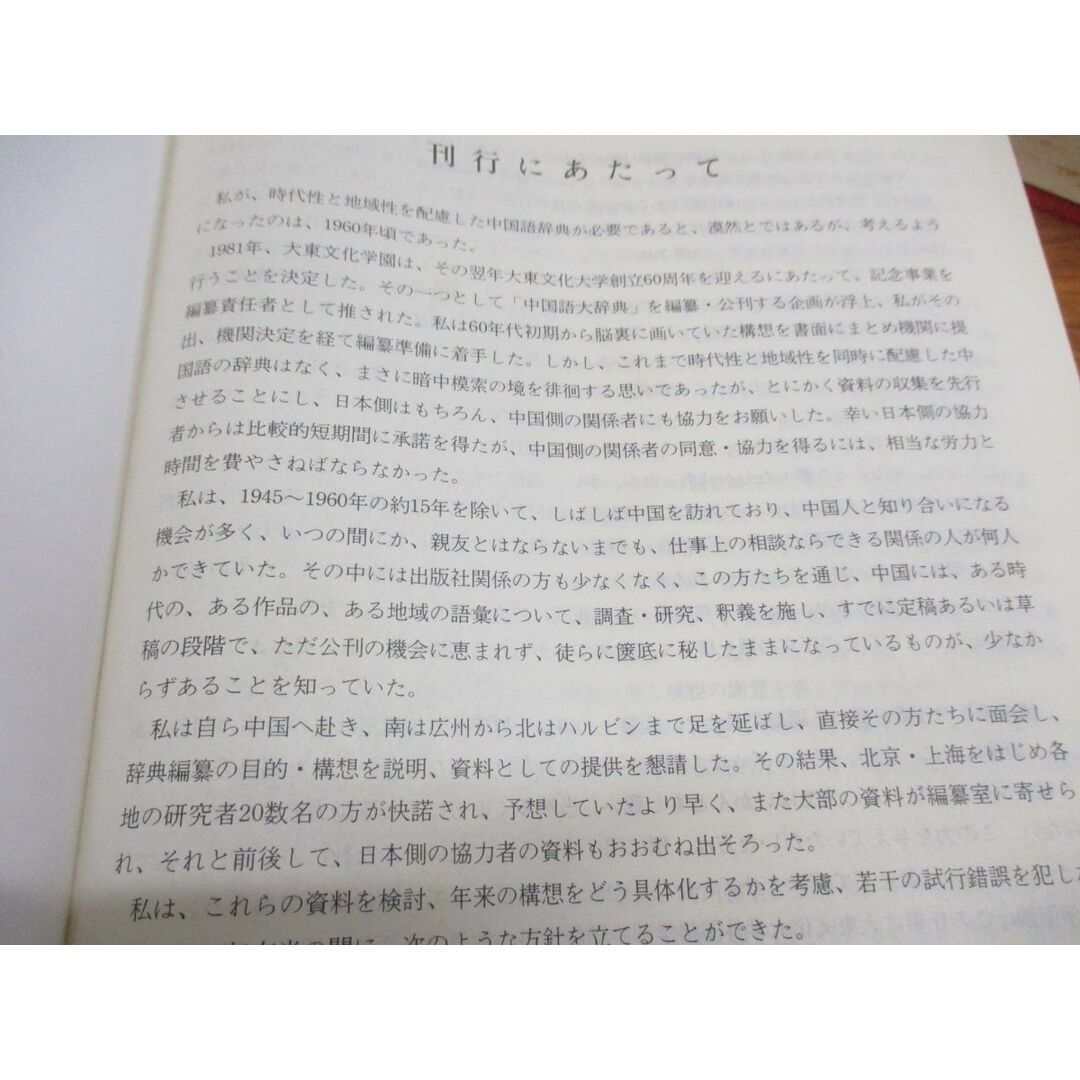 刊行にあたって
私が、時代性と地域性を配慮した中国語辞典が必要であると、漠然とではあるが、考えるよう
になったのは、1960年頃であった。
1981年、大東文化学園は、その翌年大東文化大学創立60周年を迎えるにあたって、記念事業を
行うことを決定した。その一つとして「中国語大辞典」を編纂・公刊する企画が浮上、私がその
編纂責任者として推された。私は60年代初期から脳裏に画いていた構想を書面にまとめ機関に提
出、機関決定を経て編纂準備に着手した。しかし、これまで時代性と地域性を同時に配慮した中
国語の辞典はなく、まさに暗中模索の境を徘徊する思いであったが、とにかく資料の収集を先行
させることにし、日本側はもちろん、中国側の関係者にも協力をお願いした。幸い日本側の協力
者からは比較的短期間に承諾を得たが、中国側の関係者の同意・協力を得るには、相当な労力と
時間を費やさねばならなかった。
私は、1945～1960年の約15年を除いて、しばしば中国を訪れており、中国人と知り合いになる
機会が多く、いつの間にか、親友とはならないまでも、仕事上の相談ならできる関係の人が何人
かできていた。その中には出版社関係の方も少なくなく、この方たちを通じ、中国には、ある時
代の、ある作品の、ある地域の語彙について、調査・研究、釈義を施し、すでに定稿あるいは草
稿の段階で、ただ公刊の機会に恵まれず、徒らに篋底に秘したままになっているものが、少なか
らずあることを知っていた。
私は自ら中国へ赴き、南は広州から北はハルビンまで足を延ばし、直接その方たちに面会し、
辞典編纂の目的・構想を説明、資料としての提供を懇請した。その結果、北京・上海をはじめ各
地の研究者20数名の方が快諾され、予想していたより早く、また大部の資料が編纂室に寄せら
れ、それと前後して、日本側の協力者の資料もおおむね出そろった。
私は、これらの資料を検討、年来の構想をどう具体化するかを考慮、若干の試行錯誤を犯し
の間に、次のような方針を立てることができた。